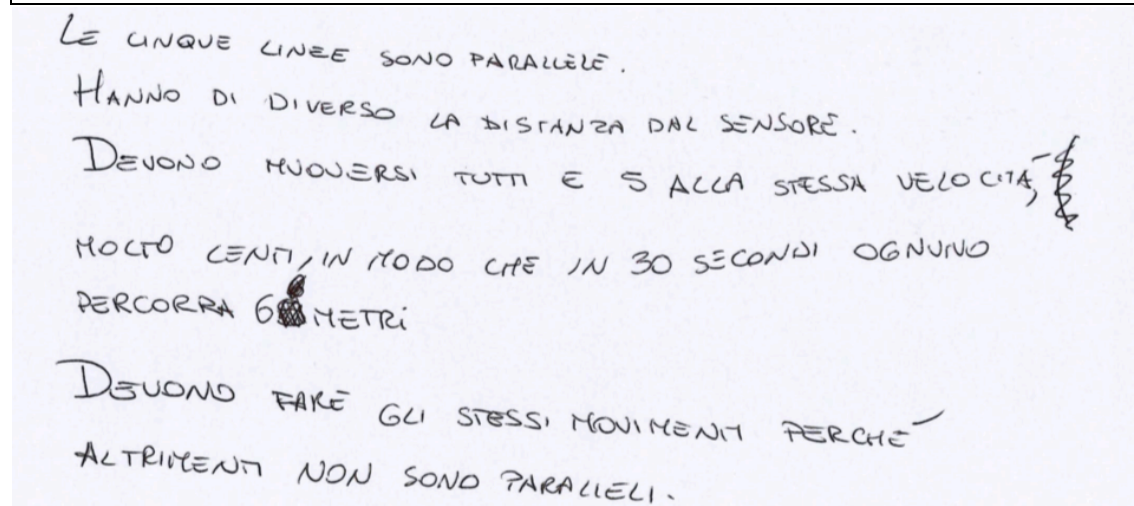 LE CINQUE LINEE SONO PARALLELE.
HANNO DI DIVERSO LA DISTANZA DAL SENSORE.
DEVONO MUOVERSI TUTTI E 5 ALLA STESSA VELOCITÀ,
MOLTO LENTI, IN MODO CHE IN 30 SECONDI OGNUNO
PERCORRA 6 METRI
DEVONO FARE GLI STESSI MOVIMENTI PERCHÉ
ALTRIMENTI NON SONO PARALLELI.